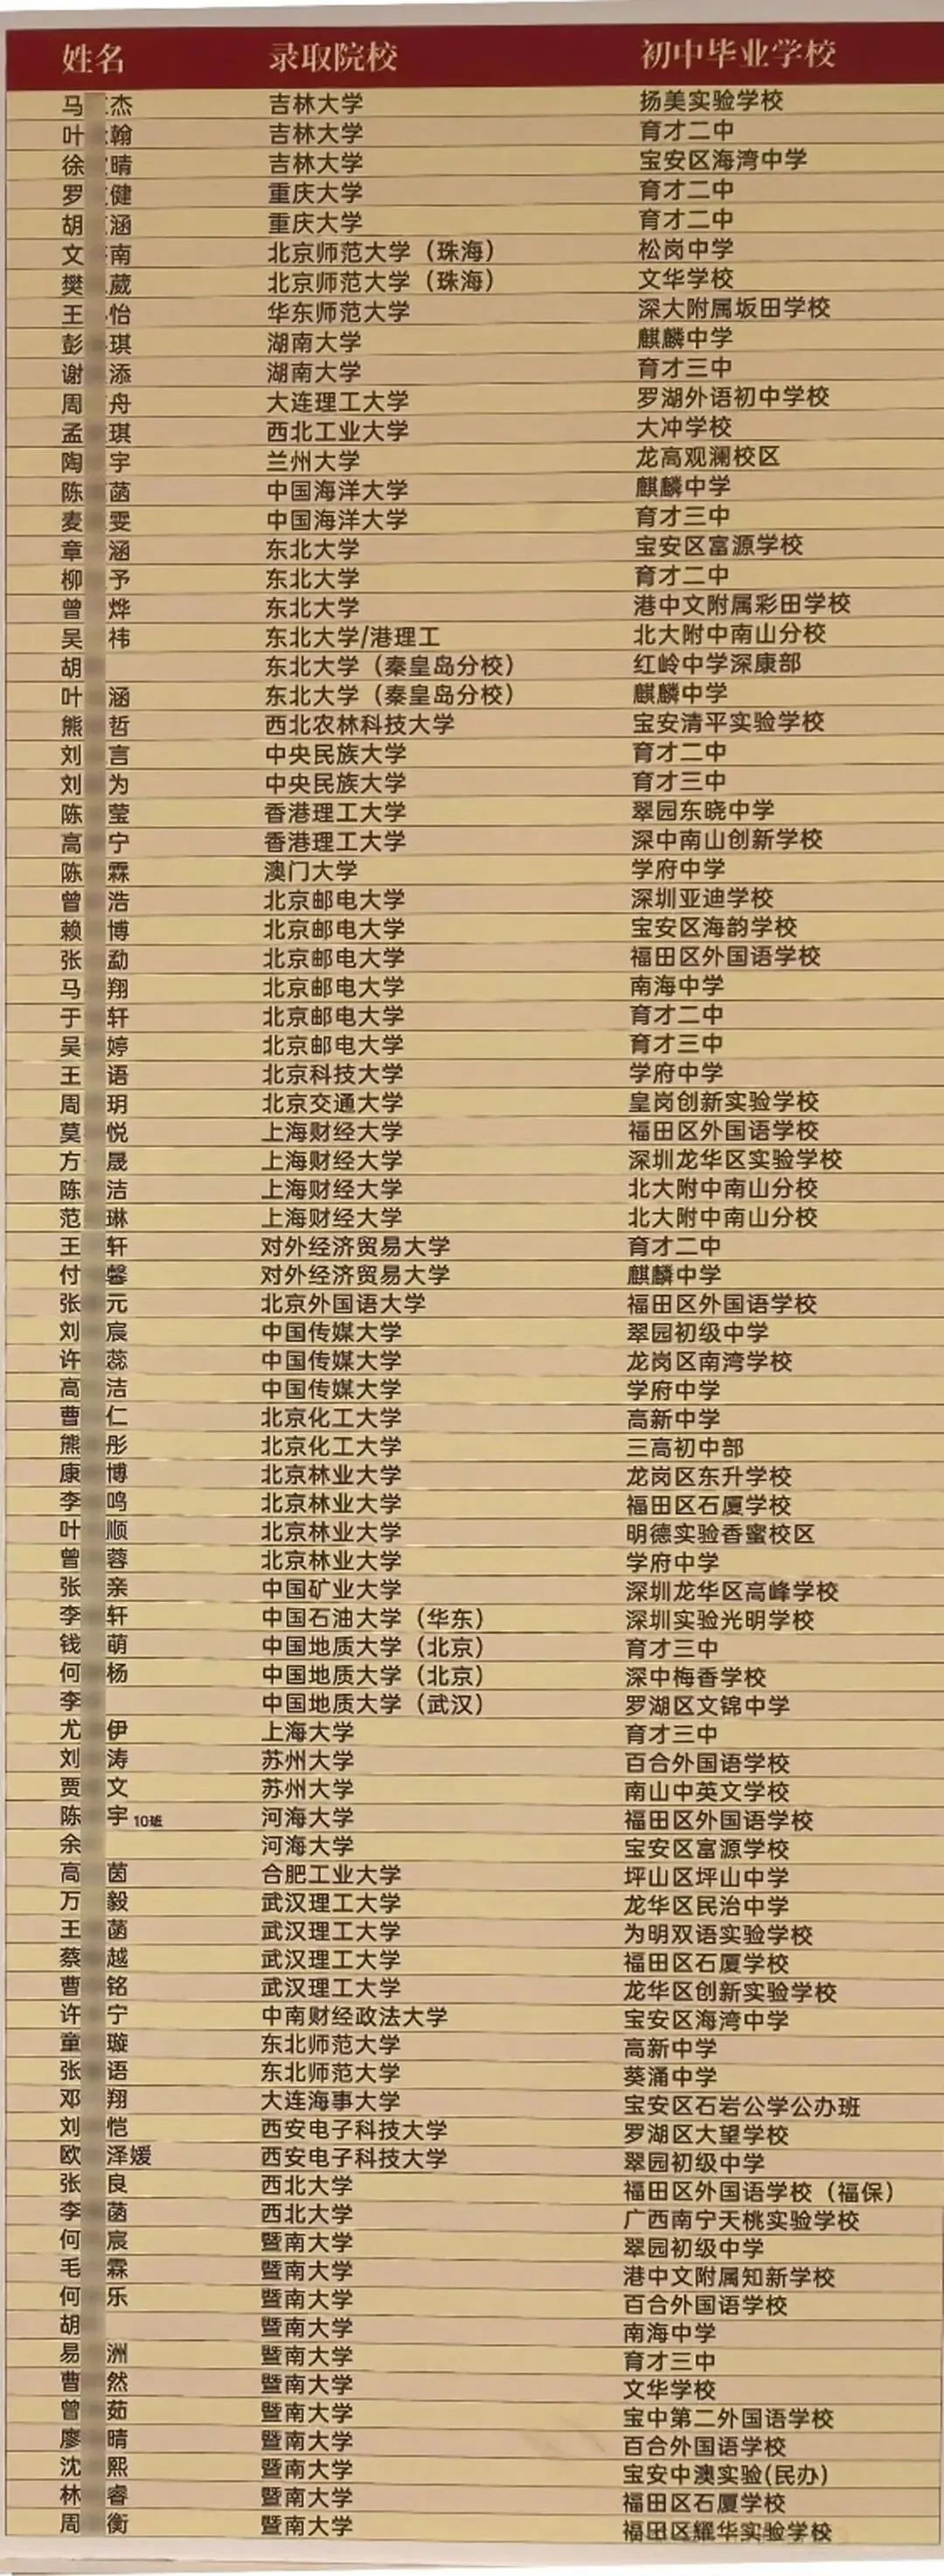 姓名 录取院校 初中毕业学校
马 杰 吉林大学 扬美实验学校
叶 翰 吉林大学 育才二中
徐 晴 吉林大学 宝安区海湾中学
罗 健 重庆大学 育才二中
胡 涵 重庆大学 育才二中
文 南 北京师范大学（珠海） 松岗中学
樊 葳 北京师范大学（珠海） 文华学校
王 怡 华东师范大学 深大附属坂田学校
彭 琪 湖南大学 麒麟中学
谢 添 湖南大学 育才三中
周 舟 大连理工大学 罗湖外语初中学校
孟 琪 西北工业大学 大冲学校
陶 宇 兰州大学 龙高观澜校区
陈 菡 中国海洋大学 麒麟中学
麦 雯 中国海洋大学 育才三中
章 涵 东北大学 宝安区富源学校
柳 予 东北大学 育才二中
曾 烨 东北大学 港中文附属彩田学校
吴 祎 东北大学/港理工 北大附中南山分校
胡 东北大学（秦皇岛分校） 红岭中学深康部
叶 涵 东北大学（秦皇岛分校） 麒麟中学
熊 哲 西北农林科技大学 宝安清平实验学校
刘 言 中央民族大学 育才二中
刘 为 中央民族大学 育才三中
陈 莹 香港理工大学 翠园东晓中学
高 宁 香港理工大学 深中南山创新学校
陈 霖 澳门大学 学府中学
曾 浩 北京邮电大学 深圳亚迪学校
赖 博 北京邮电大学 宝安区海韵学校
张 勐 北京邮电大学 福田区外国语学校
马 翔 北京邮电大学 南海中学
于 轩 北京邮电大学 育才二中
吴 婷 北京邮电大学 育才三中
王 语 北京科技大学 学府中学
周 玥 北京交通大学 皇岗创新实验学校
莫 悦 上海财经大学 福田区外国语学校
方 晟 上海财经大学 深圳龙华区实验学校
陈 洁 上海财经大学 北大附中南山分校
范 琳 上海财经大学 北大附中南山分校
王 轩 对外经济贸易大学 育才二中
付 馨 对外经济贸易大学 麒麟中学
张 元 北京外国语大学 福田区外国语学校
刘 宸 中国传媒大学 翠园初级中学
许 蕊 中国传媒大学 龙岗区南湾学校
高 洁 中国传媒大学 学府中学
曹 仁 北京化工大学 高新中学
熊 彤 北京化工大学 三高初中部
康 博 北京林业大学 龙岗区东升学校
李 鸣 北京林业大学 福田区石厦学校
叶 顺 北京林业大学 明德实验香蜜校区
曾 蓉 北京林业大学 学府中学
张 亲 中国矿业大学 深圳龙华区高峰学校
李 轩 中国石油大学（华东） 深圳实验光明学校
钱 萌 中国地质大学（北京） 育才三中
何 杨 中国地质大学（北京） 深中梅香学校
李 中国地质大学（武汉） 罗湖区文锦中学
尤 伊 上海大学 育才三中
刘 涛 苏州大学 百合外国语学校
贾 文 苏州大学 南山中英文学校
陈 宇 10班 河海大学 福田区外国语学校
余 河海大学 宝安区富源学校
高 茵 合肥工业大学 坪山区坪山中学
万 毅 武汉理工大学 龙华区民治中学
王 菡 武汉理工大学 为明双语实验学校
蔡 越 武汉理工大学 福田区石厦学校
曹 铭 武汉理工大学 龙华区创新实验学校
许 宁 中南财经政法大学 宝安区海湾中学
童 璇 东北师范大学 高新中学
张 语 东北师范大学 葵涌中学
邓 翔 大连海事大学 宝安区石岩公学公办班
刘 恺 西安电子科技大学 罗湖区大望学校
欧 泽媛 西安电子科技大学 翠园初级中学
张 良 西北大学 福田区外国语学校（福保）
李 菡 西北大学 广西南宁天桃实验学校
何 宸 暨南大学 翠园初级中学
毛 霖 暨南大学 港中文附属知新学校
何 乐 暨南大学 百合外国语学校
胡 暨南大学 南海中学
易 洲 暨南大学 育才三中
曹 然 暨南大学 文华学校
曾 茹 暨南大学 宝中第二外国语学校
廖 晴 暨南大学 百合外国语学校
沈 熙 暨南大学 宝安中澳实验(民办)
林 睿 暨南大学 福田区石厦学校
周 衡 暨南大学 福田区耀华实验学校